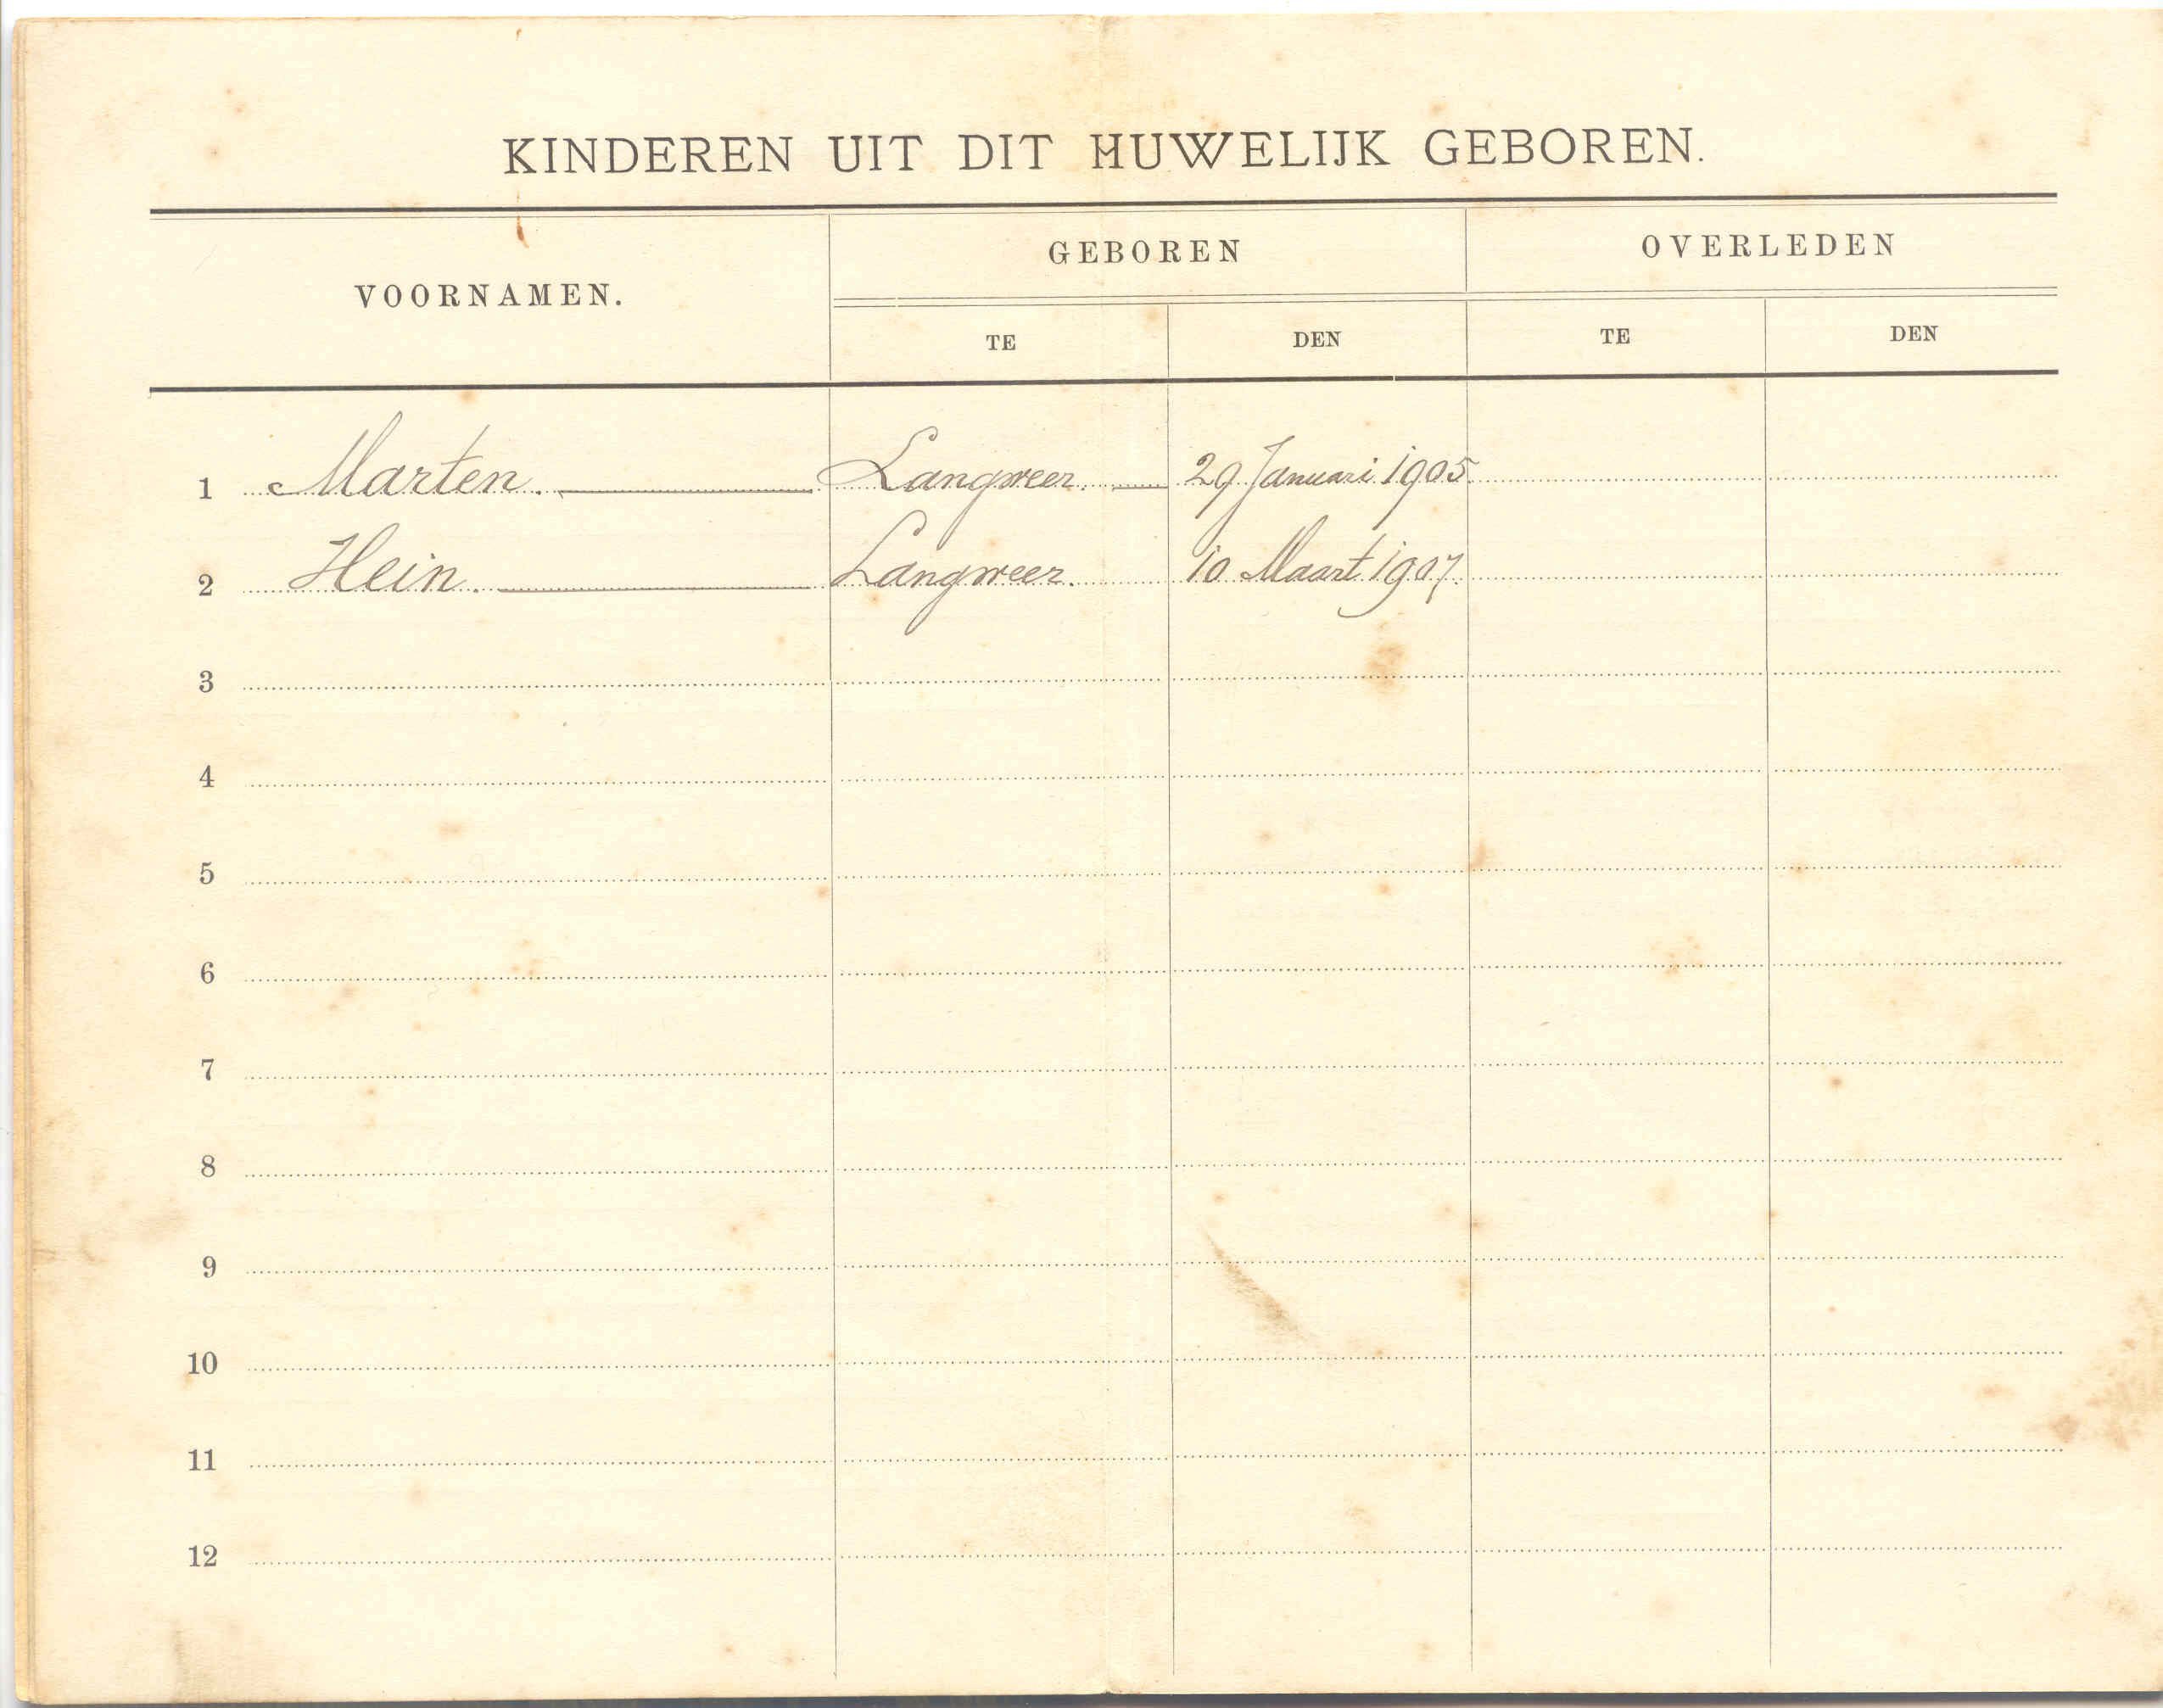 KINDEREN UIT DIT HUWELIJK GEBOREN.
VOORNAMEN. GEBOREN OVERLEDEN
TE DEN TE DEN
1 Marten. Langweer. 29 Januari 1905
2 Hein. Langweer. 10 Maart 1907.
3
4
5
6
7
8
9
10
11
12